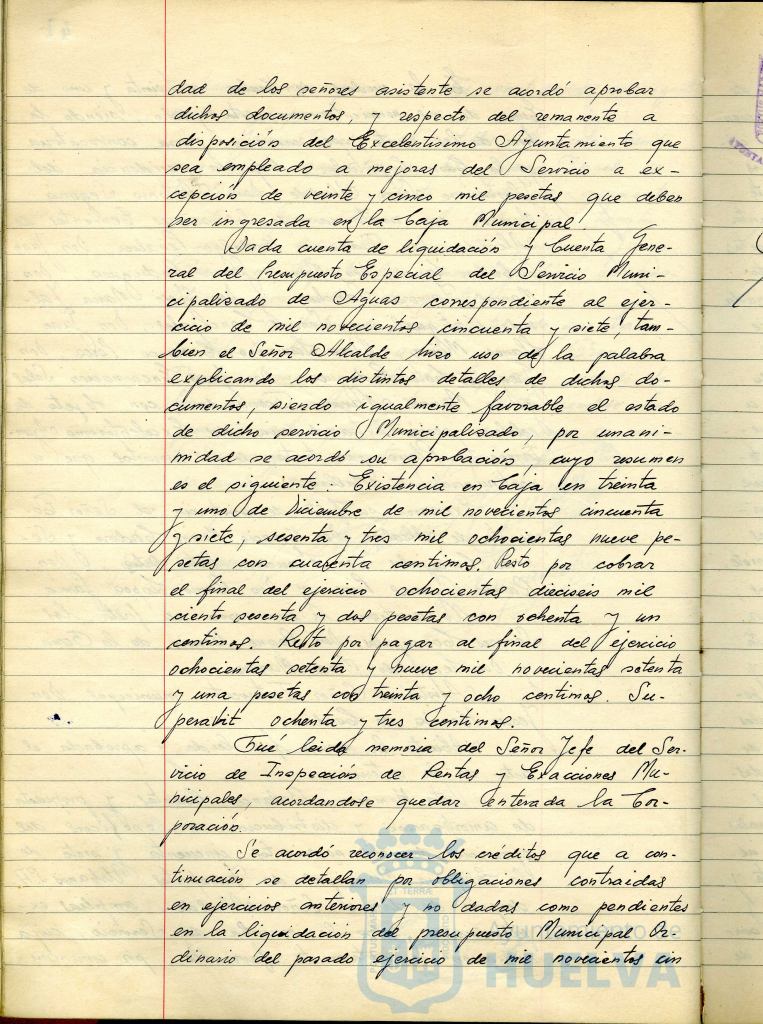 dad de los señores asistente se acordó aprobar
dichos documentos, y respecto del remanente a
disposición del Excelentisimo Ayuntamiento que
sea empleado a mejoras del Servicio a ex-
cepción de veinte y cinco mil pesetas que deben
ser ingresada en la Caja Municipal.
Dada cuenta de liquidación y Cuenta Gene-
ral del Presupuesto Especial del Servicio Muni-
cipalizado de Aguas correspondiente al ejer-
cicio de mil novecientos cincuenta y siete, tam-
bien el Señor Alcalde hizo uso de la palabra
explicando los distintos detalles de dichos do-
cumentos, siendo igualmente favorable el estado
de dicho servicio Municipalizado, por unani-
midad se acordó su aprobación, cuyo resumen
es el siguiente: Existencia en Caja en treinta
y uno de Diciembre de mil novecientos cincuenta
y siete, sesenta y tres mil ochocientas nueve pe-
setas con cuarenta centimos. Resto por cobrar
el final del ejercicio ochocientas dieciseis mil
ciento sesenta y dos pesetas con ochenta y un
centimos. Resto por pagar al final del ejercicio
ochocientas setenta y nueve mil novecientas setenta
y una pesetas con treinta y ocho centimos. Su-
peravit ochenta y tres centimos.
Fué leida memoria del Señor Jefe del Ser-
vicio de Inspección de Rentas y Exacciones Mu-
nicipales, acordandose quedar enterada la Cor-
poración.
Se acordó reconocer los créditos que a con-
tinuación se detallan por obligaciones contraidas
en ejercicios anteriores y no dadas como pendientes
en la liquidación del presupuesto Municipal Or-
dinario del pasado ejercicio de mil novecientos cin
HUELVA